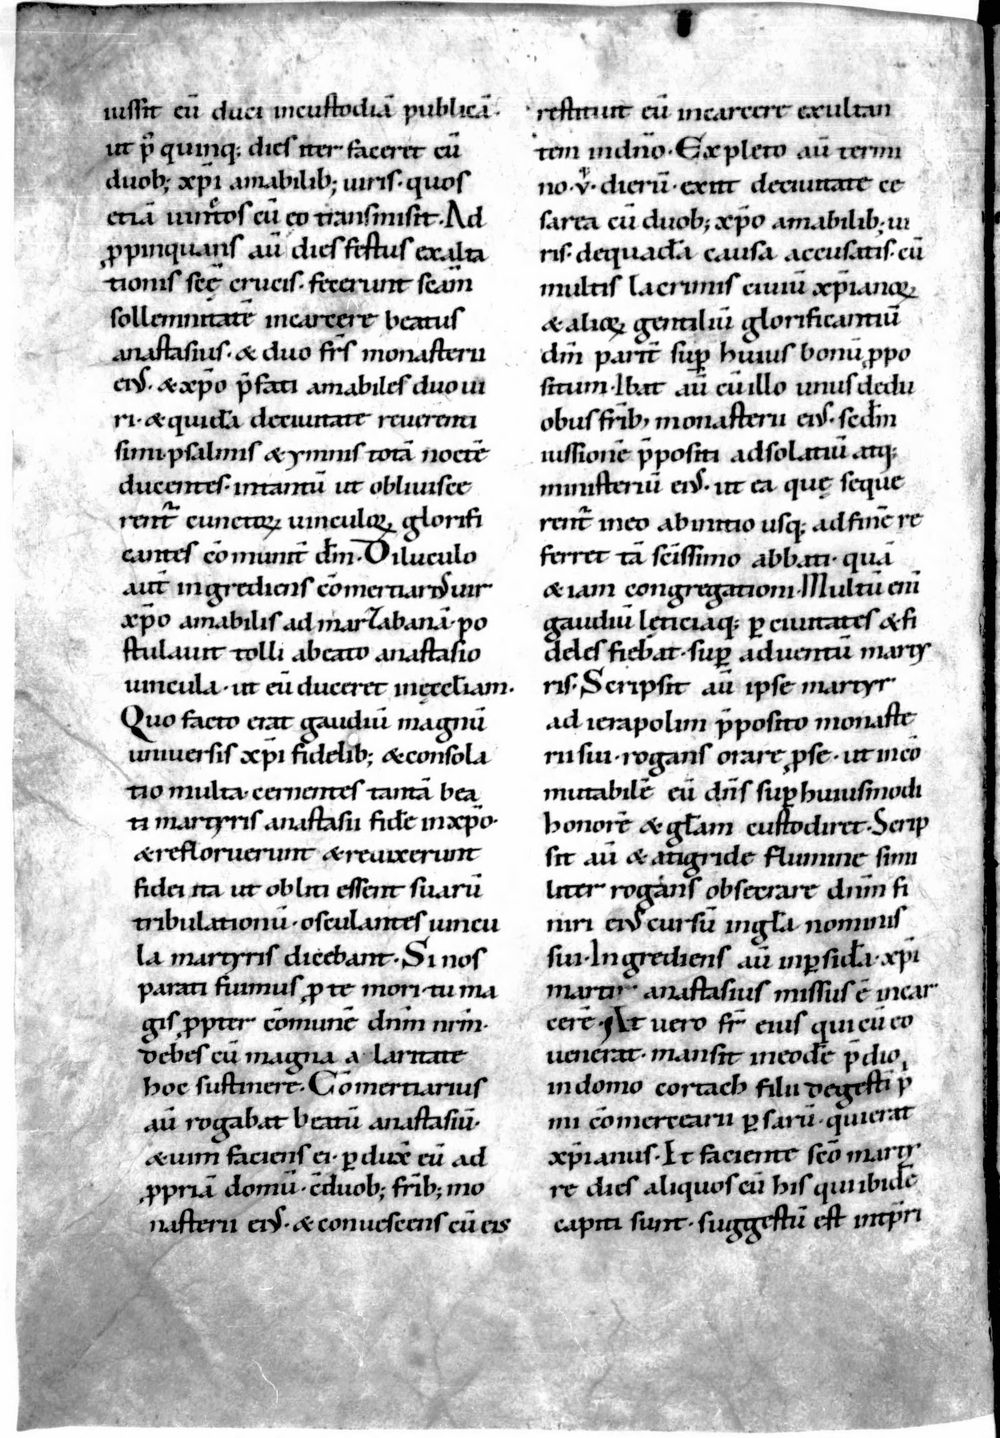 iussit eū duci incustodiā publicā·
ut p̄ quinq; dies iter faceret eū
duob; xp̄i amabilib; uiris· quos
etiā uinctos cū eo transmisit· Ad
ꝓpinquans aū dies festus exalta
tionis scę̄ crucis· fecerunt scām
sollemnitatē incarcere beatus
anastasius· & duo fr̄s monasterii
ei᾽· & xp̄o p̄fati amabiles duo ui
ri· & quidā deciuitate reuerenti
simi· psalmis & ymnis totā noctē
ducentes· intantū ut obliuisce
rent᷑ cunctoꝝ uinculoꝝ glorifi
cantes cōmunit̄ dm̄· Diluculo
aut̄ ingrediens cōmertiari᾽ uir
xp̄o amabilis ad marzabanā· po
stulauit tolli abeato anastasio
uincula· ut eū duceret inęccl̄iam·
Quo facto erat gaudiū magnū
uniuersis xp̄i fidelib; & consola
tio multa· cernentes tantā bea
ti martyris anastasii fidē inxp̄o·
& refloruerunt & reuixerunt
fidei ita ut obliti essent suarū
tribulationū· osculantes uincu
la martyris dicebant· Si nos
parati fuimus ꝓ te mori· tu ma
gis ꝓpter cōmunē dnm̄ nrm̄·
debes cū magna alaritate
hoc sustinere· Cōmertiarius
aū rogabat beatū anastasiū·
& uim faciens ei· ꝑduxē eū ad
ꝓpriā domū· c̄duob; frīb; mo
nasterii ei᾽· & conuescens cū eis
restituit eū incarcere exultan
tem indn̄o· Expleto aū termi
no· v̄· dierū· exiit deciuitate ce
sarea cū duob; xp̄o amabilib; ui
ris· dequadā causa accusatis· cū
multis lacrimis ciuiū xp̄ianoꝝ
& alioꝝ gentiliū glorificantiū
dm̄ parit̄ suꝑ huius bonū ꝓpo
situm· Ibat aū cū illo unus dedu
obus frīb; monasterii ei᾽· sedm̄
iussionē p̄positi adsolatiū atq;
ministeriū ei᾽· ut ea quę seque
rent᷑ ineo abinitio usq; adfinē re
ferret tā scīssimo abbati· quā
& iam congregationi· Multū enī
gaudiū lęticiaq; ꝑ ciuitates & fi
deles fiebat· suꝑ aduentū marty
ris· Scripsit aū ipse martyr
ad ierapolim p̄posito monaste
rii sui· rogans orare ꝓse· ut incō
mutabilē eū dn̄s suꝑ huiusmodi
honorē & gl̄am custodiret· Scrip
sit aū & atigride flumine simi
liter rogans obsecrare dnm̄ fi
niri ei᾽ cursū ingl̄a nominis
sui· Ingrediens aū inꝑsidā· xp̄i
martir anastasius missus ē incar
cerē· At uero fr̄ eius qui cū eo
uenerat· mansit ineodē p̄dio
indomo cortach filii degesti p̄
mi cōmercearii ꝑsarū· qui erat
xp̄ianus· Et faciente scō marty
re dies aliquos cū his qui ibidē
capiti sunt· suggestū est intp̄ri